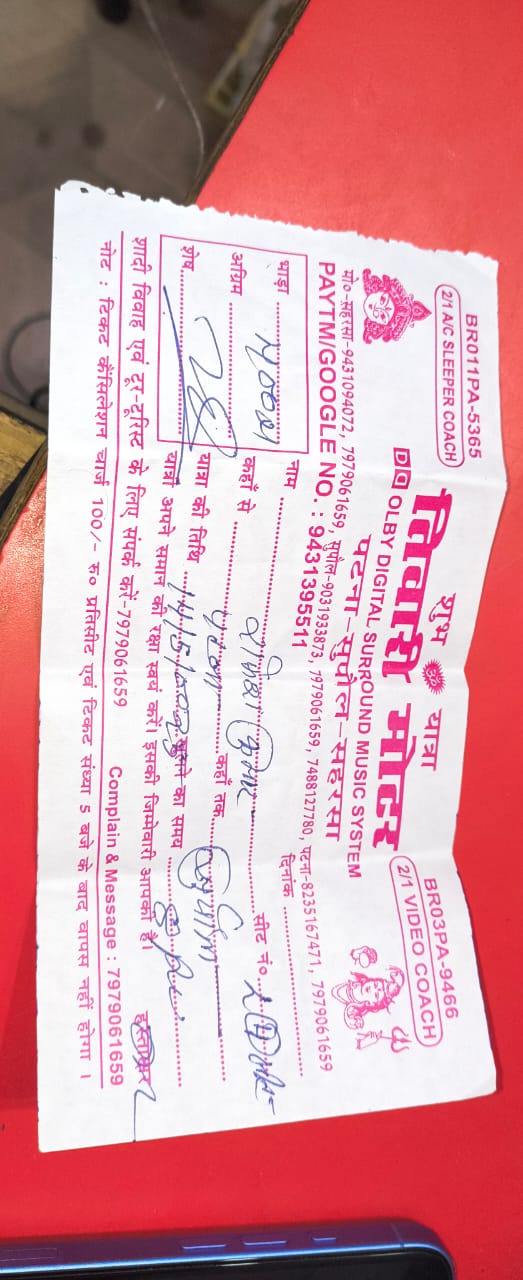 BR011PA-5365
2/1 A/C SLEEPER COACH
शुभ यात्रा
BR03PA-9466
2/1 VIDEO COACH
तिवारी मोटर
OLBY DIGITAL SURROUND MUSIC SYSTEM
पटना-सुपौल-सहरसा
मो०-सहरसा-9431094072, 7979061659, सुपौल-9031933873, 7979061659, 7488127780, पटना-8235167471, 7979061659
PAYTM/GOOGLE NO. : 9431395511
दिनांक
नाम कुमार सीट नं०
भाड़ा
कहाँ से पटना कहाँ तक
अग्रिम
यात्रा की तिथि का समय
शेष
यात्री अपने समान की रक्षा स्वयं करें। इसकी जिम्मेवारी आपकी है।
हस्ताक्षर
शादी विवाह एवं टूर-टूरिस्ट के लिए संपर्क करें-7979061659
Complain & Message : 7979061659
नोट : टिकट कैंसिलेशन चार्ज 100/- रू० प्रतिसीट एवं टिकट संध्या 5 बजे के बाद वापस नहीं होगा ।